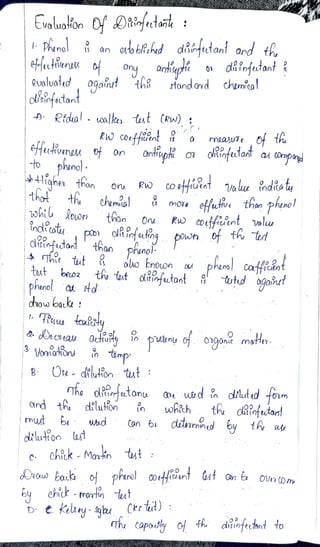 Evaluation Of Disinfectants :
1. Phenol is an established disinfectant and the
effectiveness of any antiseptic or disinfectant is
evaluated against this standard chemical
disinfectant
A. Ridial - walker test (RW) :
RW coefficient is a measure of the
effectiveness of an antiseptic or disinfectant as compared
to phenol.
* Higher than one RW coefficient value indicate
that the chemical is more effective than phenol
while lower than one RW coefficient value
indicates poor disinfecting power of the test
disinfectant than phenol.
* This test is also known as phenol coefficient
test becoz the test disinfectant is tested against
phenol as std.
draw backs :
1. Tissue toxicity
2. Decrease activity in presence of organic matter.
3. Variations in temp.
B. Use - dilution test :
The disinfectants are used in diluted form
and the dilution in which the disinfectant
must be used can be determined by the use
dilution test
C. chick - Martin test :
Draw backs of phenol coefficient test can be overcome
by chick - martin test
D. Kelsey - sykes (KS test) :
The capacity of the disinfectant to